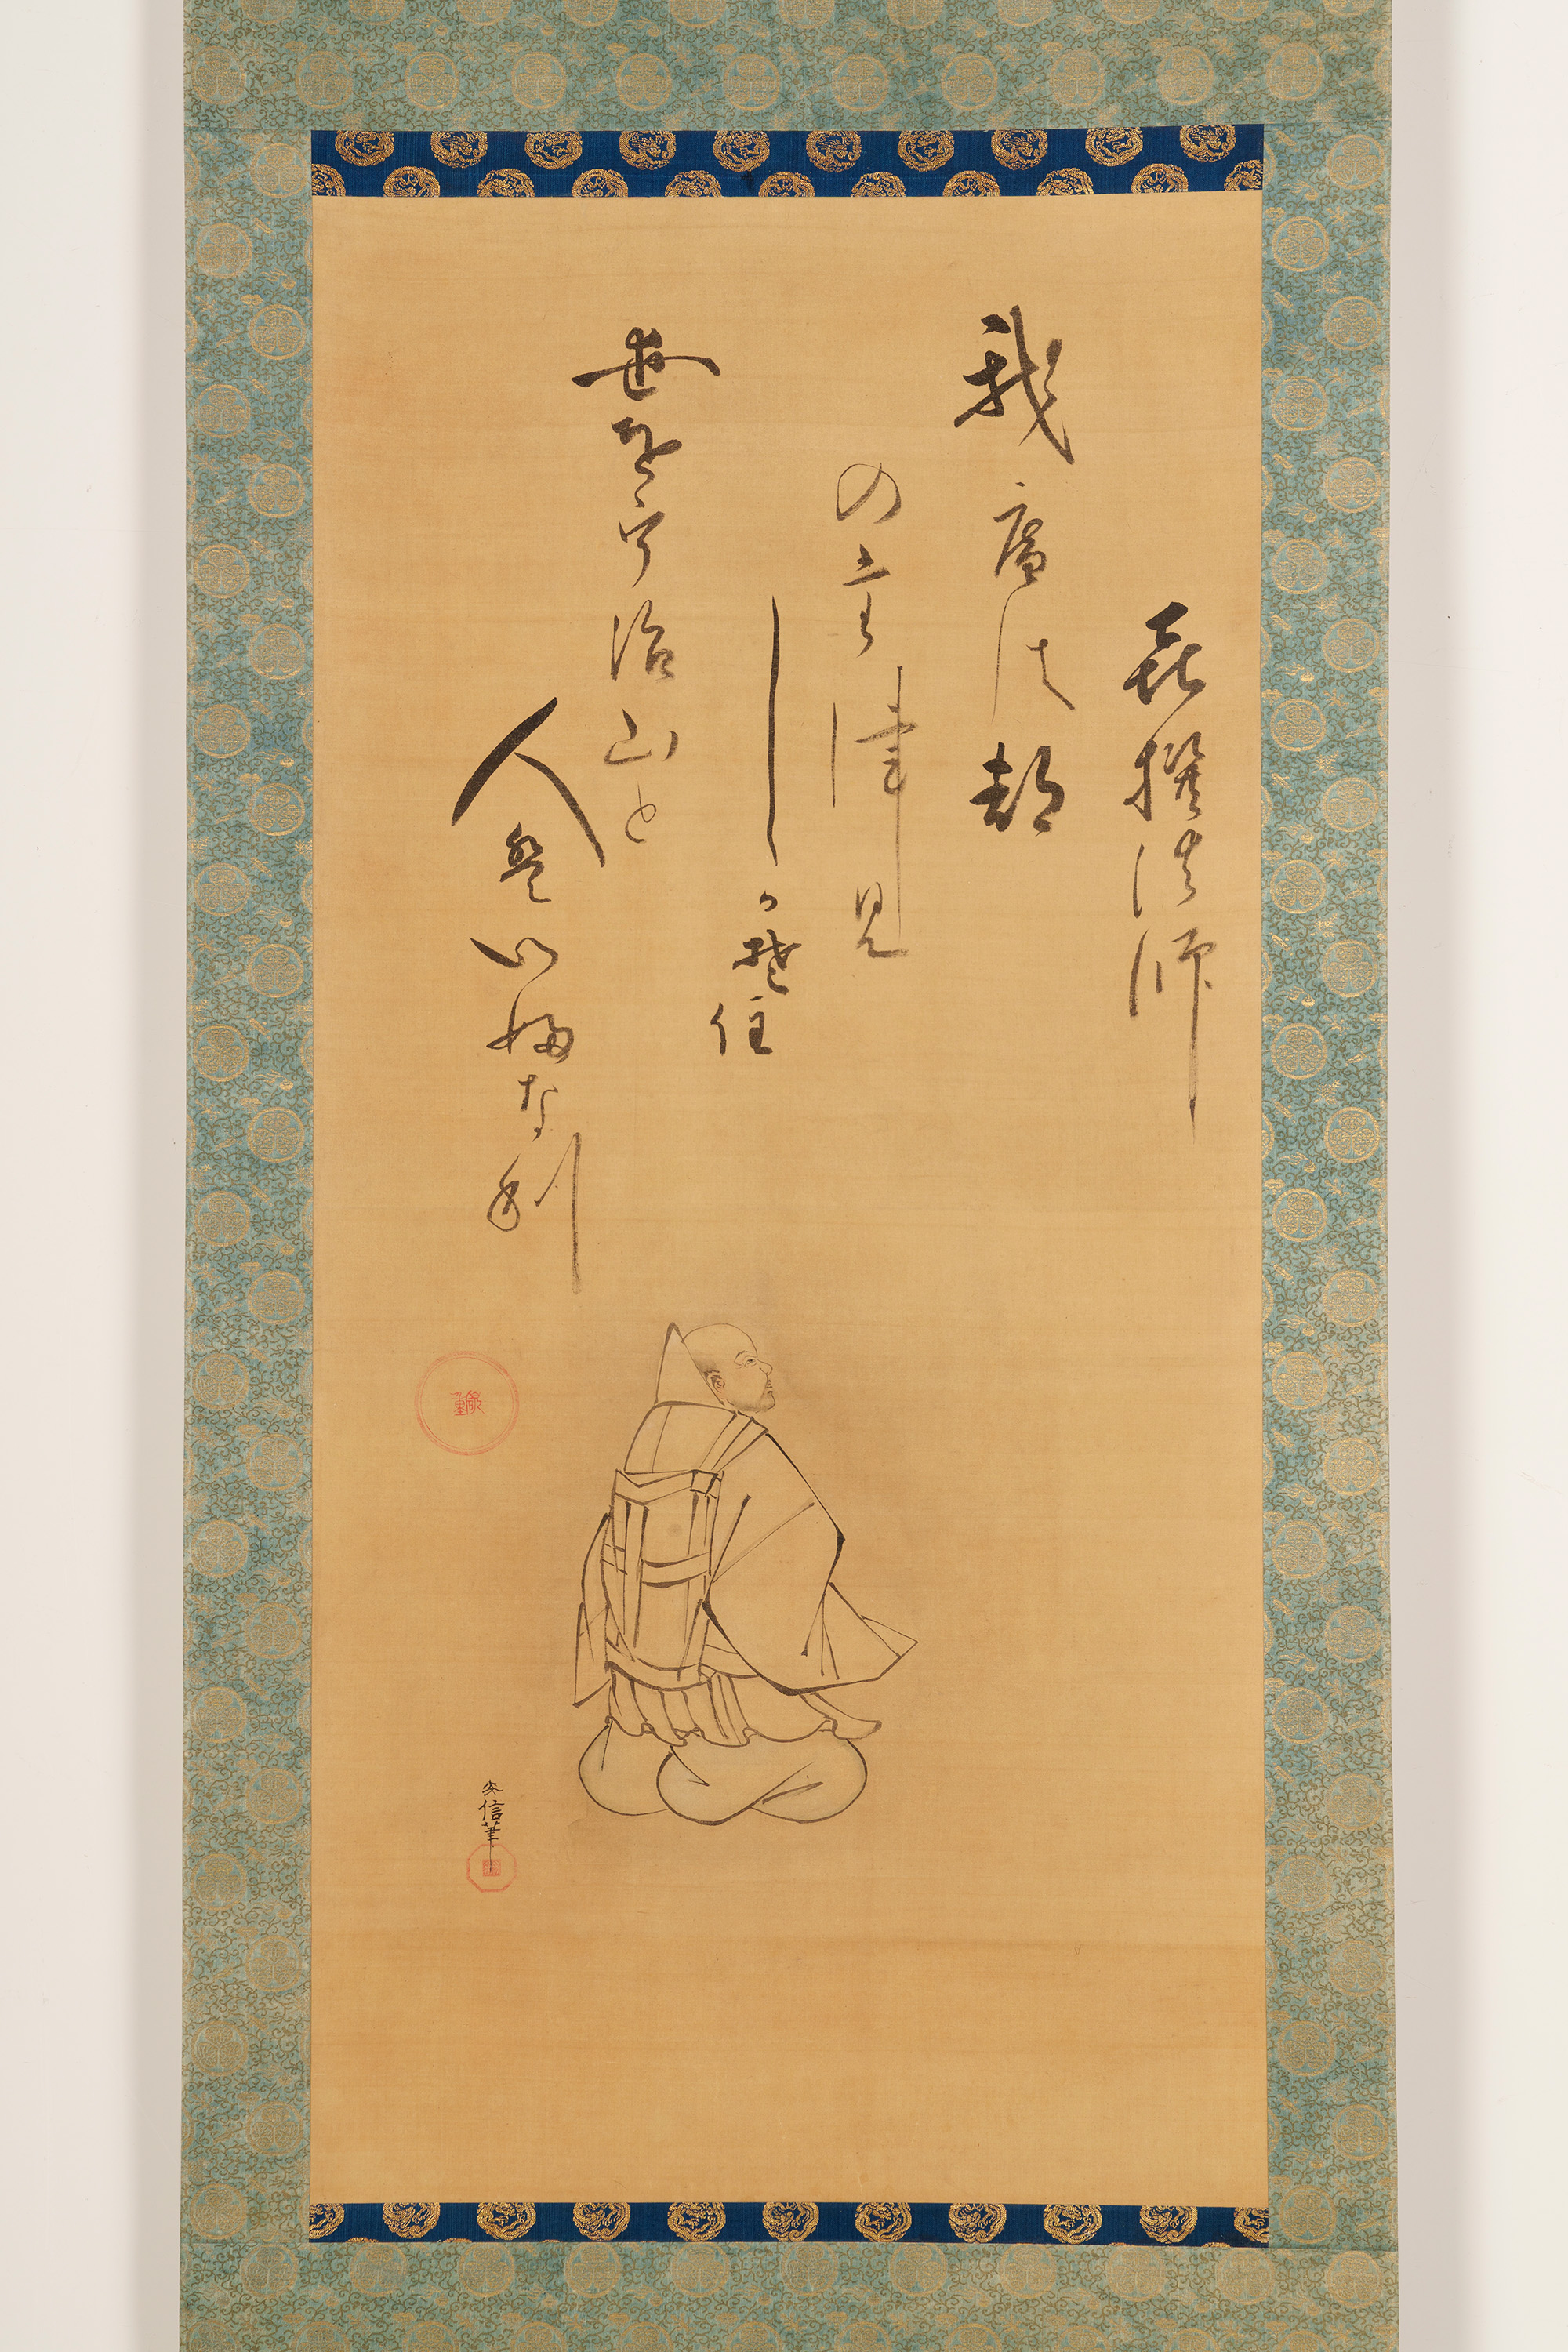 喜撰法師
我庵は都
の たつ見
しかそ住
世をうち山と
人はいふなり
安信筆